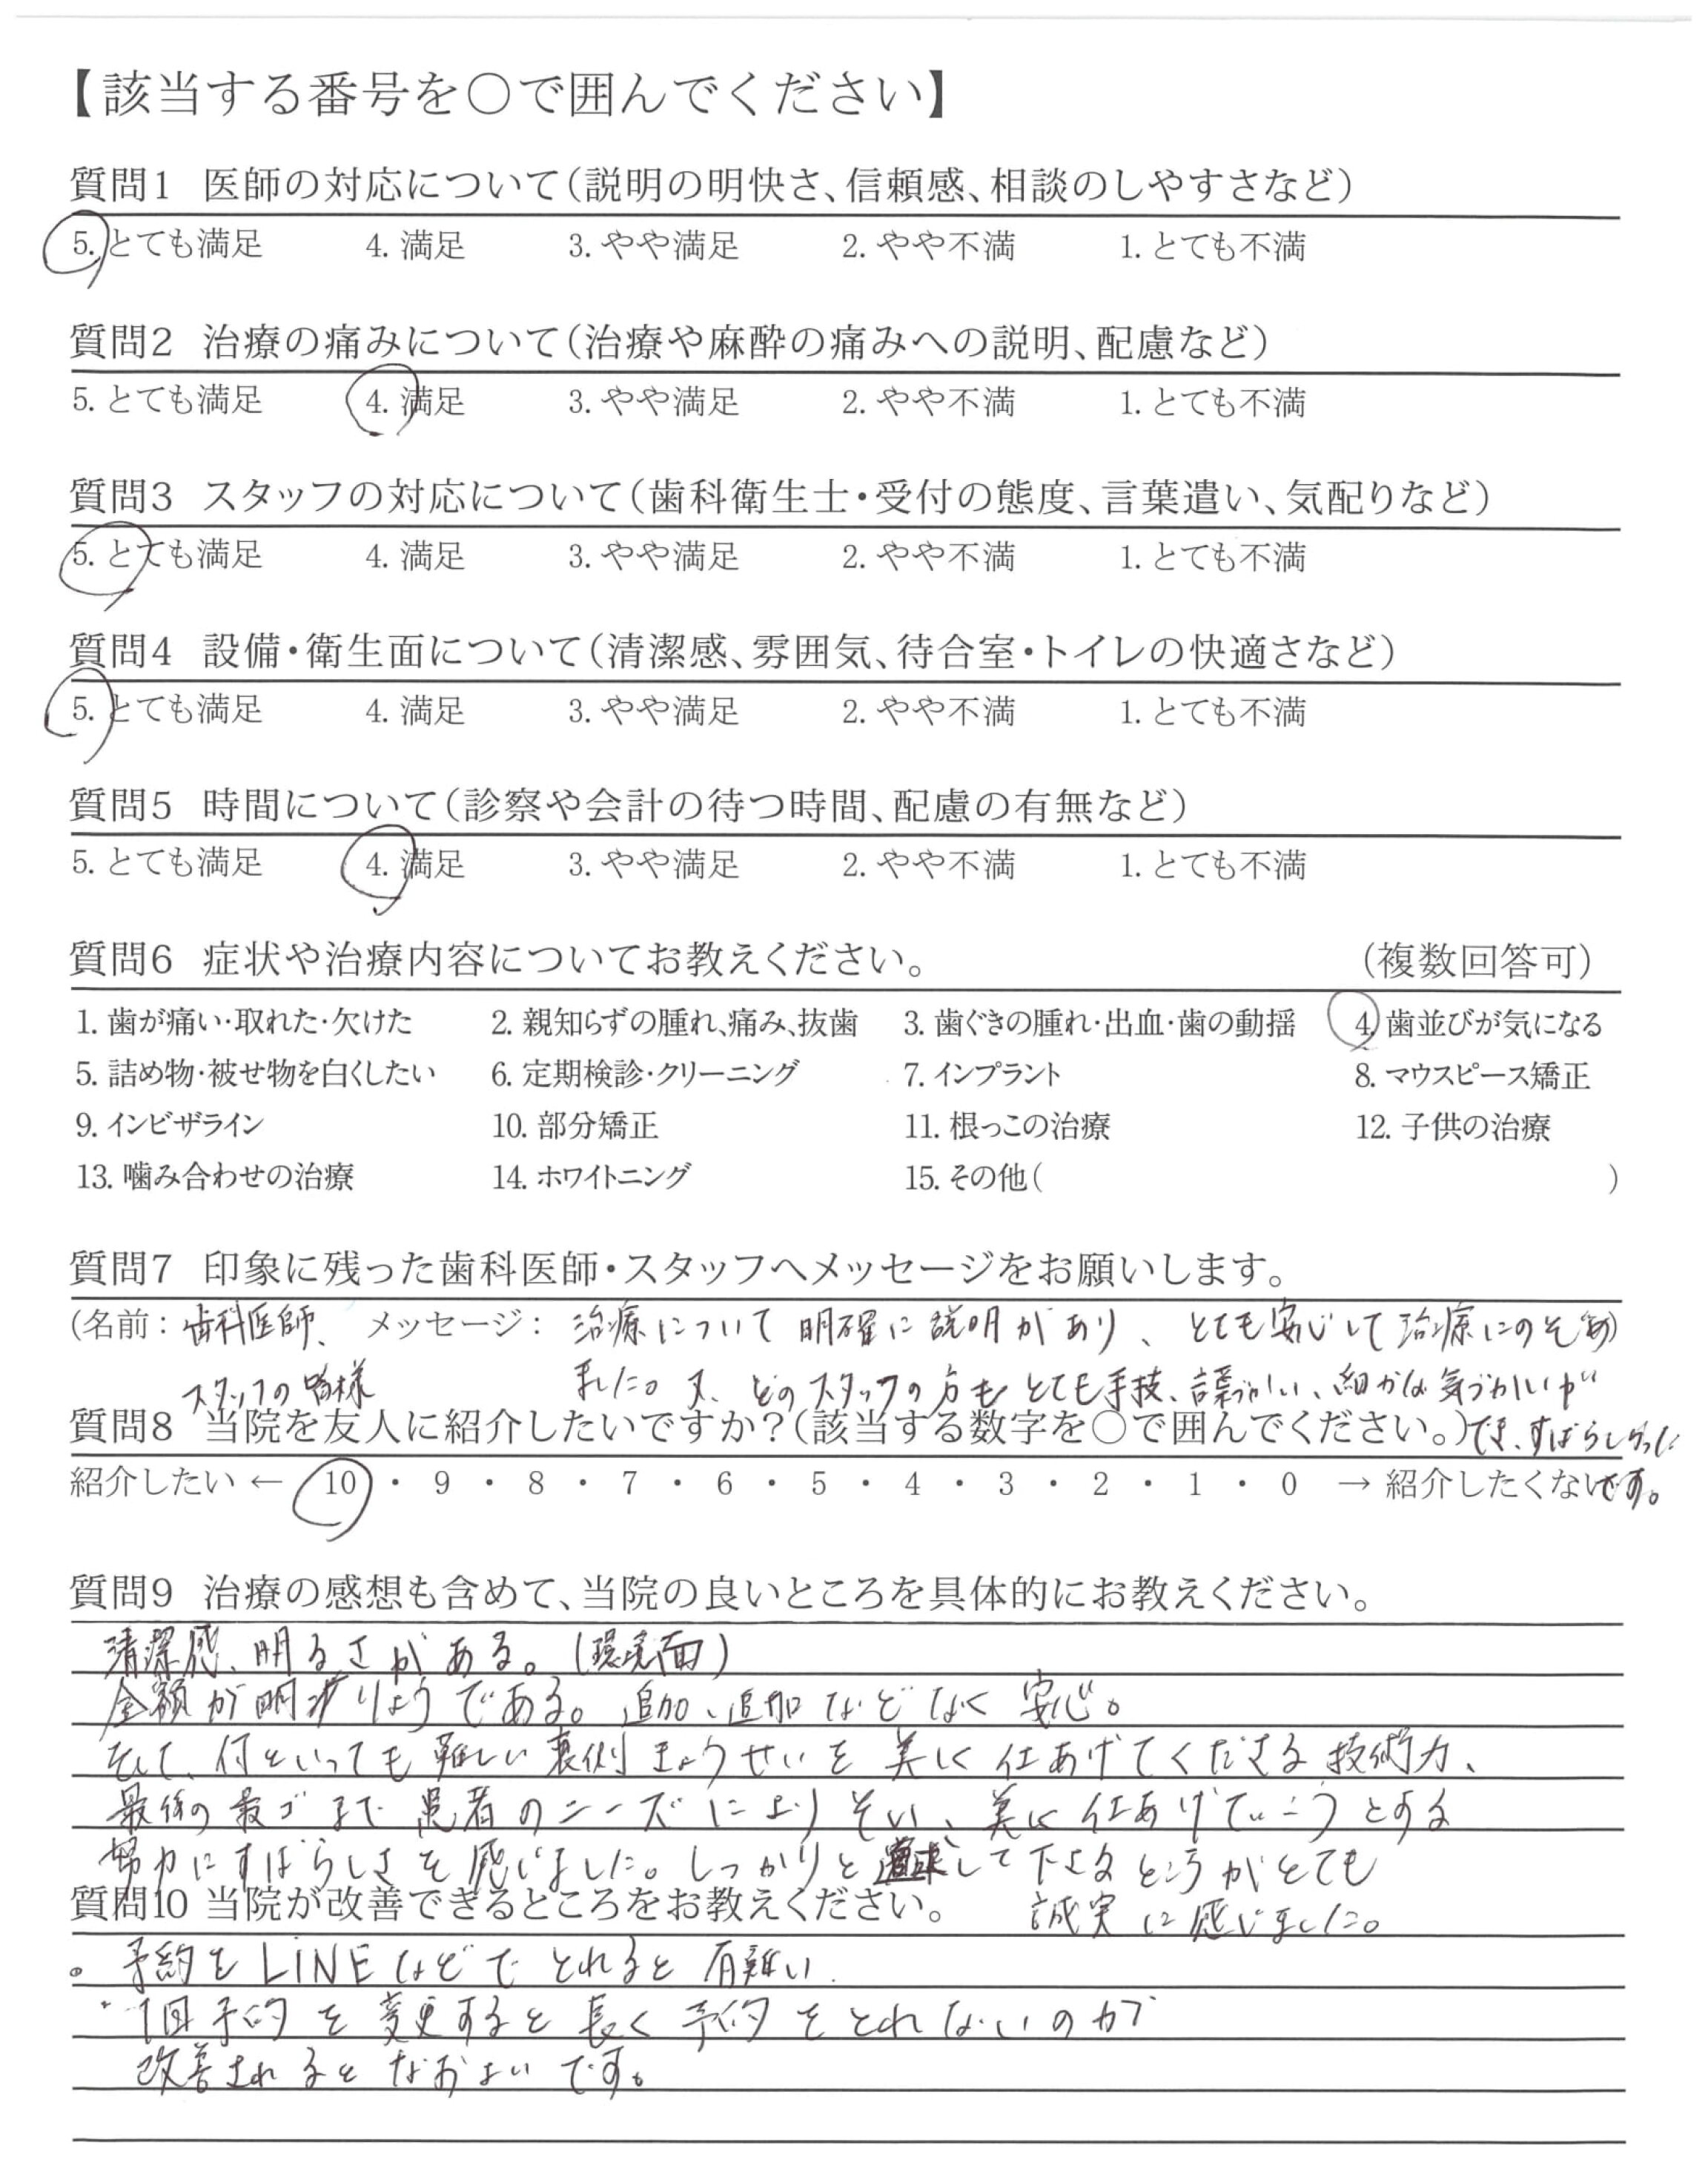 【該当する番号を○で囲んでください】
質問1 医師の対応について(説明の明快さ、信頼感、相談のしやすさなど)
5. とても満足 4. 満足 3. やや満足 2. やや不満 1. とても不満
質問2 治療の痛みについて(治療や麻酔の痛みへの説明、配慮など)
5. とても満足 4. 満足 3. やや満足 2. やや不満 1. とても不満
質問3 スタッフの対応について(歯科衛生士・受付の態度、言葉遣い、気配りなど)
5. とても満足 4. 満足 3. やや満足 2. やや不満 1. とても不満
質問4 設備・衛生面について(清潔感、雰囲気、待合室・トイレの快適さなど)
5. とても満足 4. 満足 3. やや満足 2. やや不満 1. とても不満
質問5 時間について(診察や会計の待つ時間、配慮の有無など)
5. とても満足 4. 満足 3. やや満足 2. やや不満 1. とても不満
質問6 症状や治療内容についてお教えください。 (複数回答可)
1. 歯が痛い・取れた・欠けた 2. 親知らずの腫れ、痛み、抜歯 3. 歯ぐきの腫れ・出血・歯の動揺 4. 歯並びが気になる
5. 詰め物・被せ物を白くしたい 6. 定期検診・クリーニング 7. インプラント 8. マウスピース矯正
9. インビザライン 10. 部分矯正 11. 根っこの治療 12. 子供の治療
13. 噛み合わせの治療 14. ホワイトニング 15. その他( )
質問7 印象に残った歯科医師・スタッフへメッセージをお願いします。
(名前: 歯科医師、 メッセージ: 治療について明確に説明があり、とても安心して治療にのぞめ)
スタッフの皆様 ました。又、どのスタッフの方もとても手技、言葉づかい、細かな気づかいが
質問8 当院を友人に紹介したいですか?(該当する数字を○で囲んでください。)でき、すばらしかった
紹介したい ← 10 ・ 9 ・ 8 ・ 7 ・ 6 ・ 5 ・ 4 ・ 3 ・ 2 ・ 1 ・ 0 → 紹介したくない です。
質問9 治療の感想も含めて、当院の良いところを具体的にお教えください。
清潔感、明るさがある。(環境面)
金額が明りょうである。追加、追加などなく安心。
そして、何といっても難しい裏側きょうせいを美しく仕あげてくださる技術力、
最後の最ゴまで患者のニーズによりそい、美しく仕あげていこうとする
努力にすばらしさを感じました。しっかりと して下さるところがとても
質問10 当院が改善できるところをお教えください。 誠実に感じました。
。予約をLINEなどでとれると有難い.
・1回予約を変更すると長く予約をとれないのが
改善されるとなおよいです。